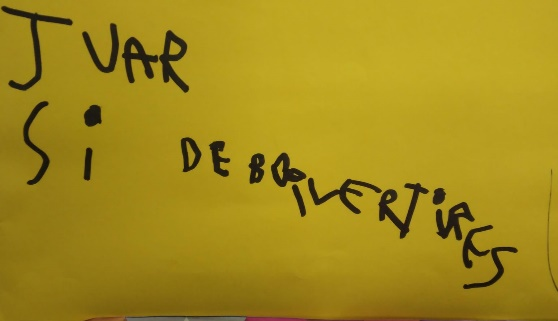 JUAR
Si DE BODIVERTiRES